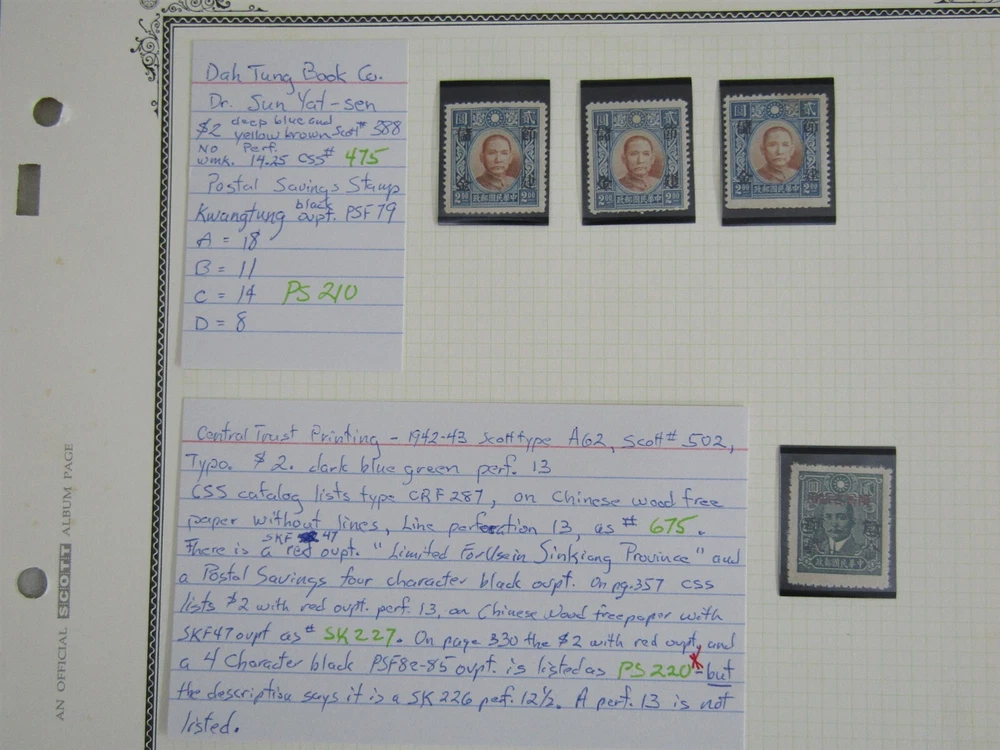 Dah Tung Book Co.
Dr. Sun Yat-sen
$2 deep blue and yellow brown Scott # 388
No wmk. Perf. 14.25 CSS# 475
Postal Savings Stamp
Kwangtung black ovpt. PSF 79
A = 18
B = 11
C = 14 PS 210
D = 8
圓 貳
儲 郵
金 政
2.00 2.00
政郵國民華中
圓 貳
儲 郵
金 政
2.00 2.00
政郵國民華中
圓 貳
儲 郵
金 政
2.00 2.00
政郵國民華中
Central Trust Printing - 1942-43 Scott type A62, Scott # 502,
Typo. $2. dark blue green perf. 13
CSS catalog lists type CRF 287, on Chinese wood free
paper without lines, Line perforation 13, as # 675.
There is a SKF 47 red ovpt. "Limited For Use in Sinkiang Province" and
a Postal Savings four character black ovpt. On pg. 357 CSS
lists $2 with red ovpt. perf. 13, on Chinese wood free paper with
SKF47 ovpt as # SK227. On page 330 the $2 with red ovpt, and
a 4 Character black PSF82-85 ovpt. is listed as PS220 - but
the description says it is a SK226 perf. 12½. A perf. 13 is not
listed.
AN OFFICIAL SCOTT ALBUM PAGE